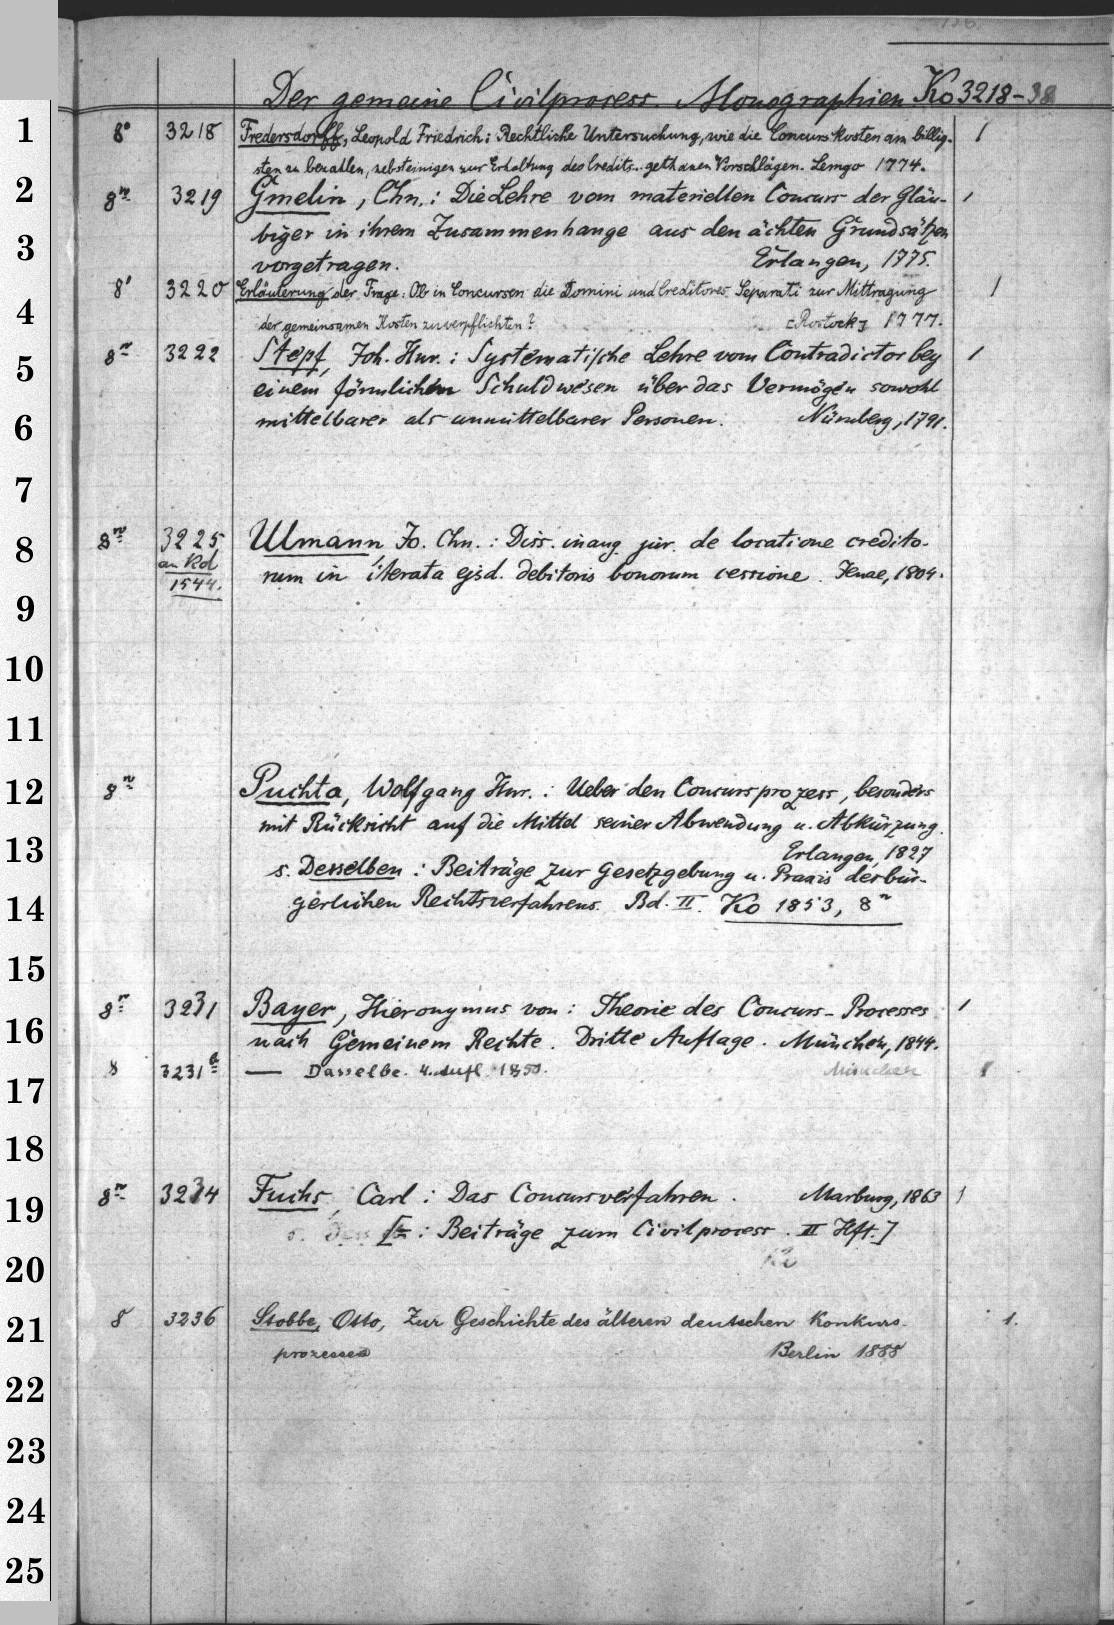 126.
Der gemeine Civilprocess. Monographien Ko 3218-38
1 8° 3218 Fredersdorff, Leopold Friedrich: Rechtliche Untersuchung, wie die Concurskosten am billig- 1
sten zu bezahlen, nebst einigen zur Erhaltung des Credits.. gethanen Vorschlägen. Lemgo 1774.
2 8n 3219 Gmelin, Chn.: Die Lehre vom materiellen Concurs der Gläu- 1
biger in ihrem Zusammenhange aus den ächten Grundsätzen
3 vorgetragen. Erlangen, 1775.
8° 3220 Erläuterung der Frage: Ob in Concursen die Domini und Creditores Separati zur Mittragung 1
4 der gemeinsamen Kosten zu verpflichten? [Rostock] 1777.
5 8n 3222 Stepf, Joh. Hnr.: Systematische Lehre vom Contradictor bey 1
einem förmlichen Schuldwesen über das Vermögen sowohl
6 mittelbarer als unmittelbarer Personen. Nürnberg, 1791.
7
8 8n 3225 Ulmann, Jo. Chn.: Diss. inaug. jur. de locatione credito-
an Kd
rum in iterata ejsd. debitoris bonorum cessione. Jenae, 1804.
1544.
9
10
11
12 8n Puchta, Wolfgang Hnr.: Ueber den Concursprozess, besonders
mit Rücksicht auf die Mittel seiner Abwendung u. Abkürzung.
13 Erlangen, 1827
s. Desselben: Beiträge zur Gesetzgebung u. Praxis des bür-
14 gerlichen Rechtsverfahrens. Bd. II. Ko 1853, 8n
15
8n 3231 Bayer, Hieronymus von: Theorie des Concurs-Processes 1
16 nach Gemeinem Rechte. Dritte Auflage. München, 1844.
8 3231a — Dasselbe. 4. Aufl. 1850. München 1
17
18
19 8n 3234 Fuchs, Carl: Das Concursverfahren. Marburg, 1863 1
: Beiträge zum Civilprocess. II Hft.]
20 Ko
21 8 3236 Stobbe, Otto, Zur Geschichte des älteren deutschen Konkurs- 1.
prozesses Berlin 1888
22
23
24
25